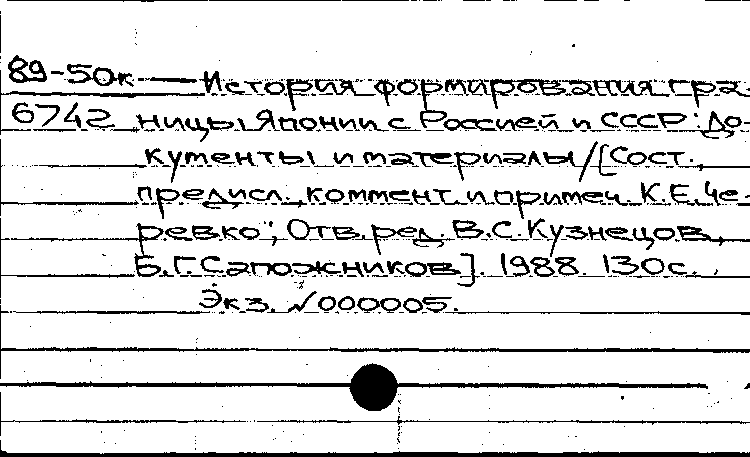 89-50к — История формирования гра-
6742 ницы Японии с Россией и СССР: До-
кументы и материалы/[Сост.,
предисл., коммент. и примеч. К.Е. Че-
ревко; Отв. ред. В.С. Кузнецов,
Б.Г. Сапожников]. 1988. 130с.
Экз. №000005.